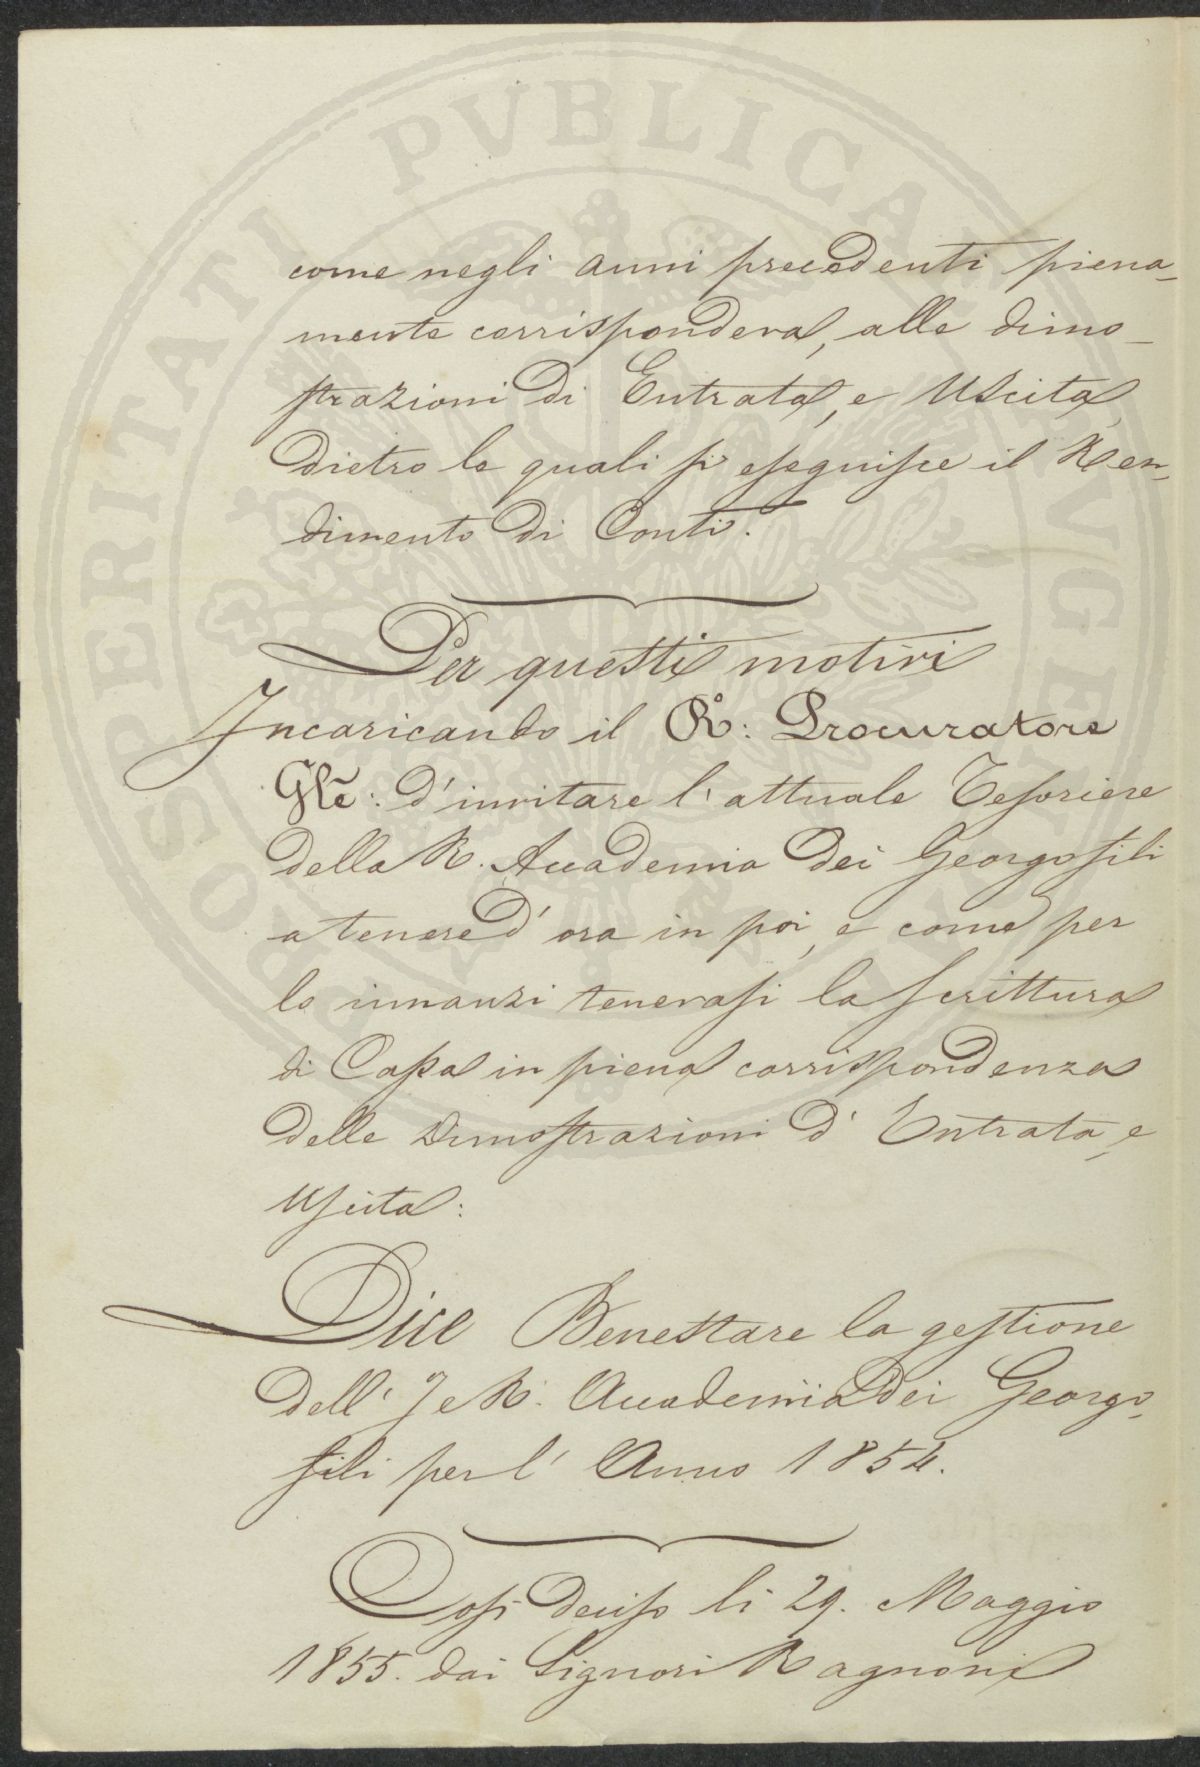 PROSPERITATI PVBLICAE AVGENDAE
come negli anni precedenti piena_
mente corrispondeva, alle dimo_
strazioni di Entrata, e Uscita,
dietro le quali si eseguisce il Ren_
dimento di Conti.
Per questi motivi
Incaricando il R.º: Procuratore
Gle: d'invitare l'attuale Tesoriere
della R. Accademia dei Georgofili
a tenere d'ora in poi, e come per
lo innanzi tenevasi la scrittura
di Cassa in piena corrispondenza
delle Dimostrazioni d'Entrata, e
Uscita:
Dice Benestare la gestione
dell'I e R. Accademia dei Georgo_
fili per l'Anno 1854.
Così deciso li 29. Maggio
1855. dai Signori Ragnoni